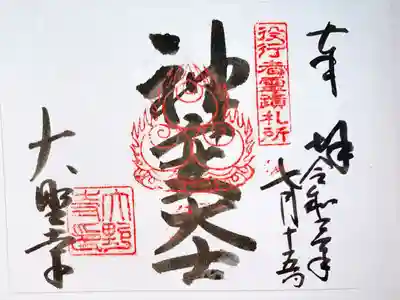 奉拝
令和三年
七月十五日
役行者霊蹟札所
神変大士
大野寺印
大埜寺